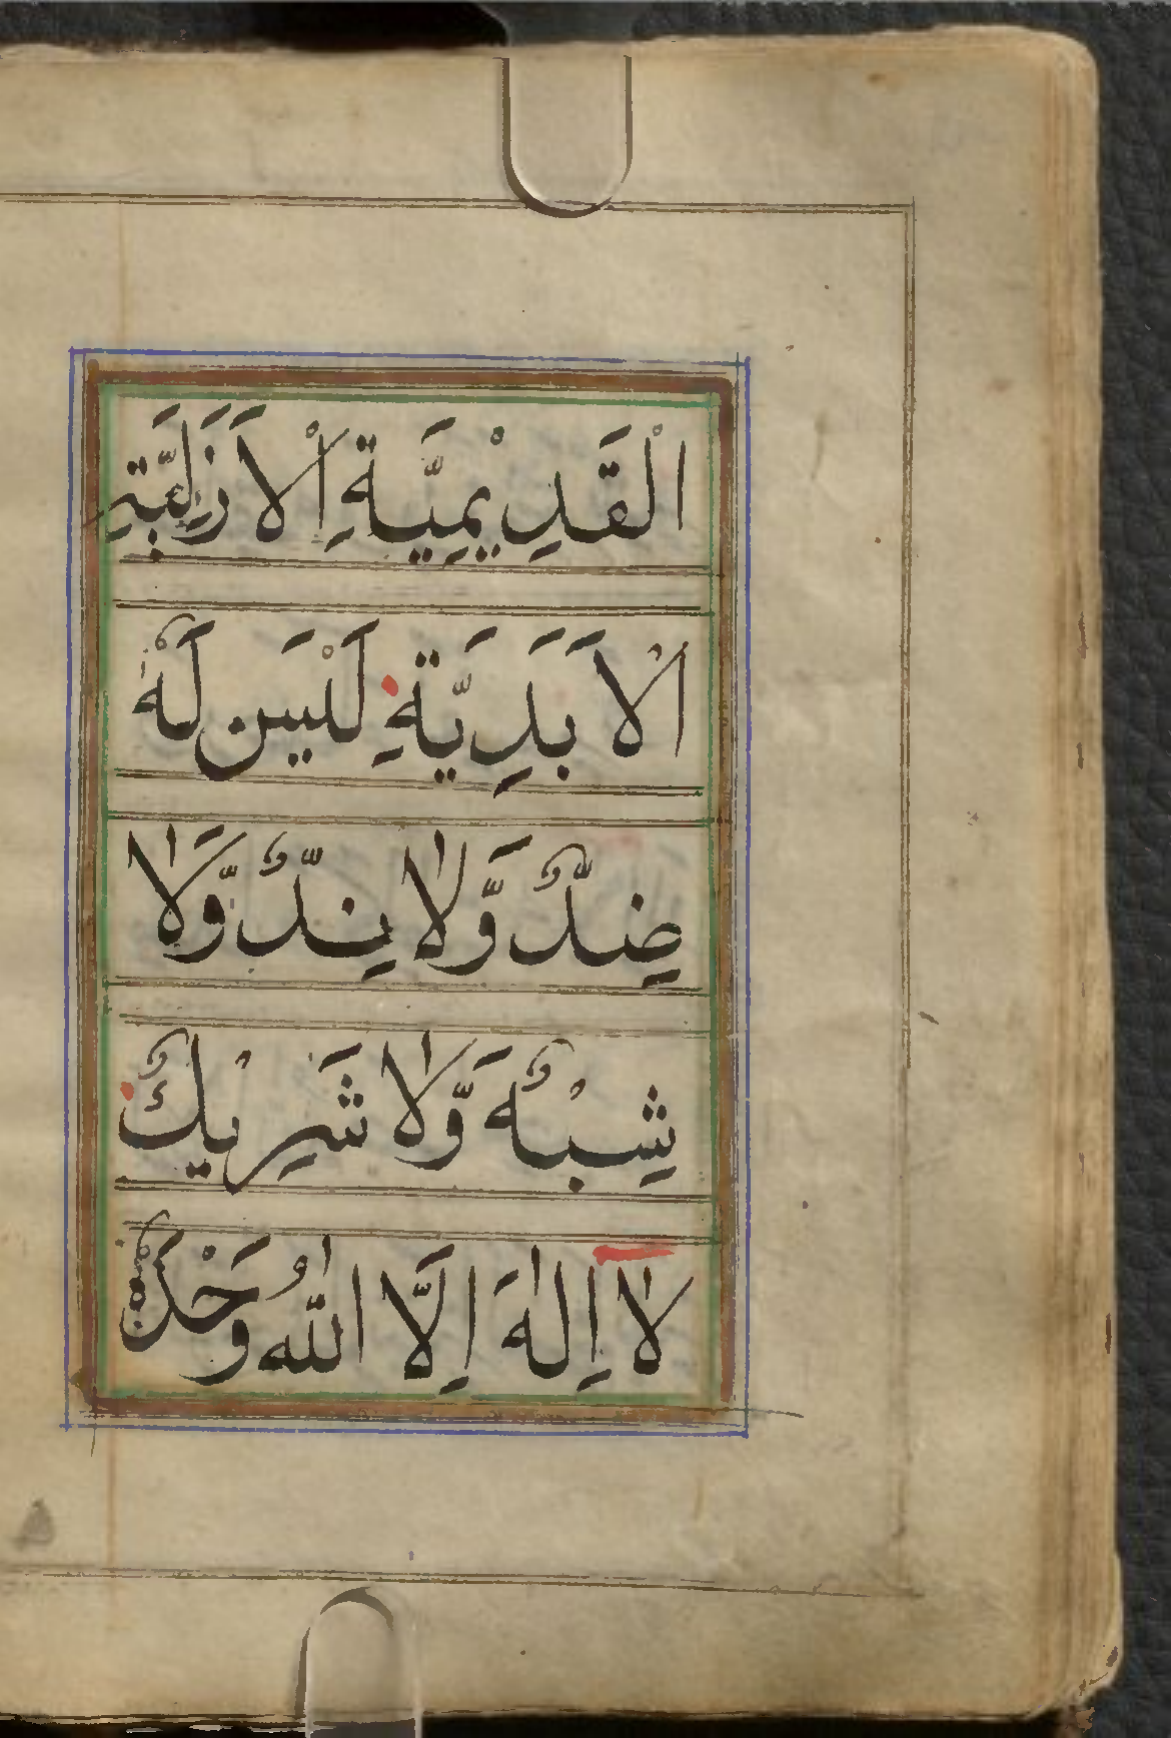 الْقَدِيْمِيَّةِ الْاَزَلِيَّةِ
الْاَبَدِيَّةِ لَيْسَ لَهٗ
ضِدٌّ وَّلَا نِدٌّ وَّلَا
شِبْهٌ وَّلَا شَرِيْكٌ
لَا اِلٰهَ اِلَّا اللّٰهُ وَحْدَهٗ